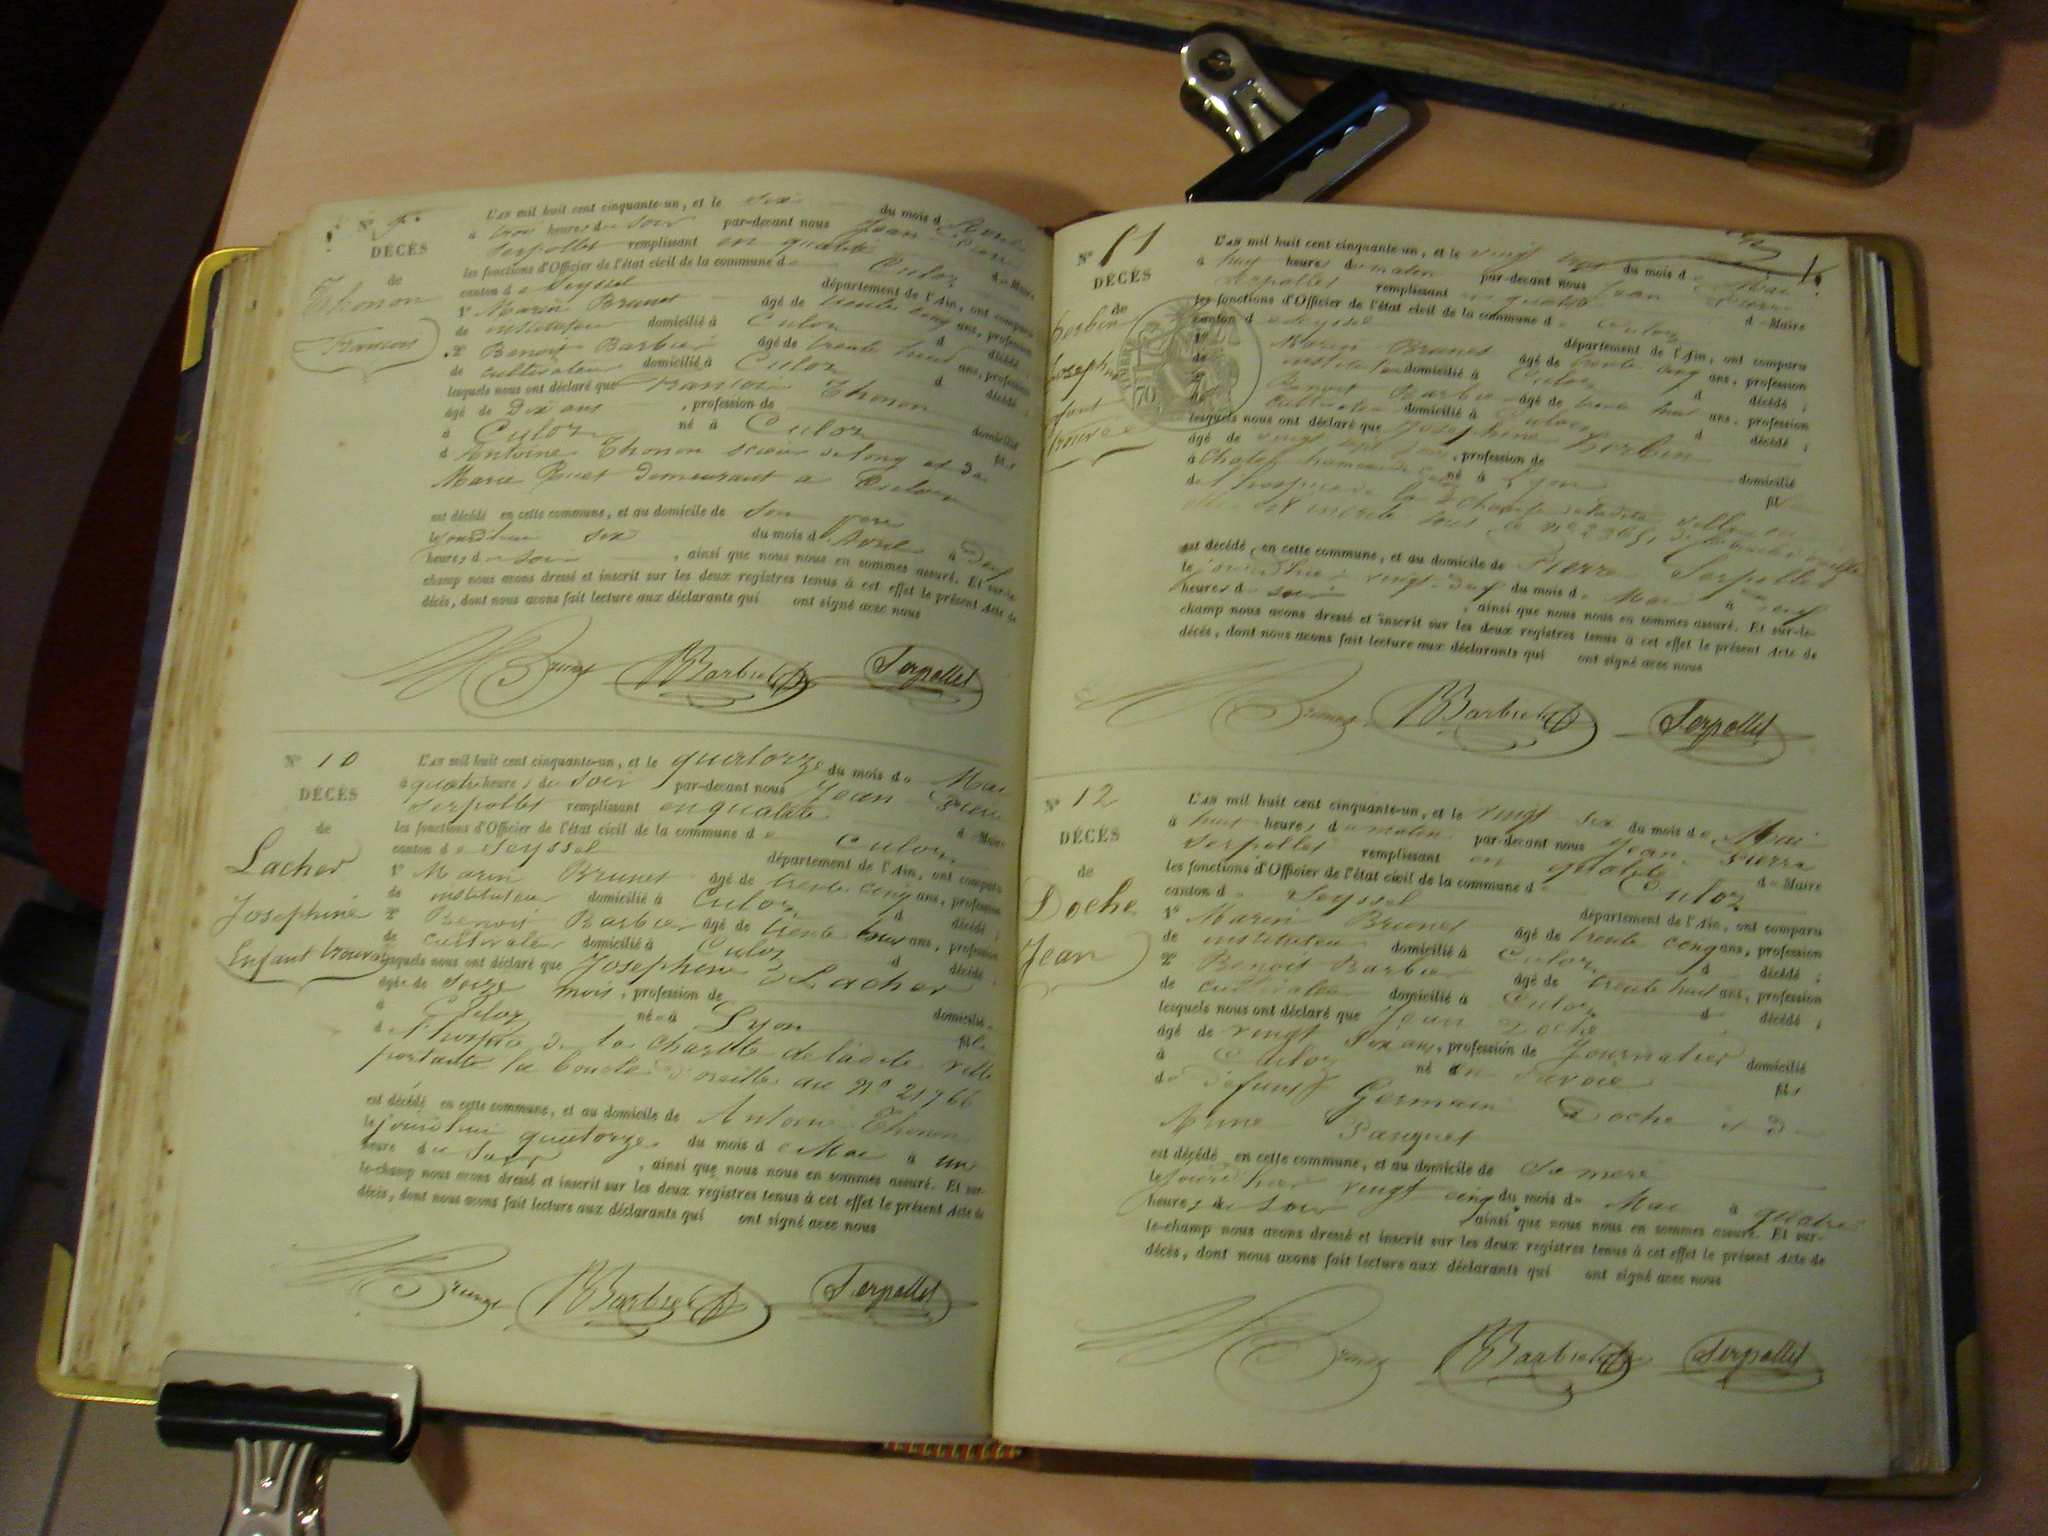 N° 9.
DÉCÈS
de
Thonon
François
L'AN mil huit cent cinquante-un, et le six du mois d Avril
à trois heures du soir par-devant nous Jean Pierre
Serpollet remplissant en qualité d Maire
les fonctions d'Officier de l'état civil de la commune d Culoz
canton de Seyssel département de l'Ain, ont comparu
1° Marin Brunet âgé de trente cinq ans, profession
de instituteur domicilié à Culoz d décédé ;
2° Benoit Barbier âgé de trente huit ans, profession
de cultivateur domicilié à Culoz d décédé ;
lesquels nous ont déclaré que François Thonon
âgé de Dix ans , profession de domicilié
à Culoz né à Culoz fils
d Antoine Thonon scieur de long et de
Marie demeurant à Culoz
est décédé en cette commune, et au domicile de son père
le jourdhui six du mois d Avril à
heures du soir , ainsi que nous nous en sommes assuré. Et sur-le-
champ nous avons dressé et inscrit sur les deux registres tenus à cet effet le présent Acte de
décès, dont nous avons fait lecture aux déclarants qui ont signé avec nous
Brunet Barbier Serpollet
N° 10
DÉCÈS
de
Lacher
Josephine
Enfant trouvé
L'AN mil huit cent cinquante-un, et le quatorze du mois de Mai
à quatre heures du soir par-devant nous Jean Pierre
Serpollet remplissant en qualité d Maire
les fonctions d'Officier de l'état civil de la commune de Culoz
canton de Seyssel département de l'Ain, ont comparu
1° Marin Brunet âgé de trente cinq ans, profession
de instituteur domicilié à Culoz d décédé ;
2° Benoit Barbier âgé de trente huit ans, profession
de cultivateur domicilié à Culoz d décédé
lesquels nous ont déclaré que Josephine Lacher
âgée de mois, profession de domiciliée
à Culoz née à Lyon fille
d l'hospice de la charité de ladite ville
portante la boucle d'oreille au N° 21766
est décédé en cette commune, et au domicile de Antoine Thonon
le jourdhui quatorze du mois de Mai à un
heure du soir , ainsi que nous nous en sommes assuré. Et sur-
le-champ nous avons dressé et inscrit sur les deux registres tenus à cet effet le présent Acte de
décès, dont nous avons fait lecture aux déclarants qui ont signé avec nous
Brunet Barbier Serpollet
N° 11
DÉCÈS
de
Josephine
trouvée
L'AN mil huit cent cinquante-un, et le vingt du mois de Mai
à huit heures du matin par-devant nous Jean Pierre
Serpollet remplissant en qualité d Maire
les fonctions d'Officier de l'état civil de la commune d Culoz
canton d Seyssel département de l'Ain, ont comparu
Marin Brunet âgé de trente cinq ans, profession
de instituteur domicilié à Culoz d décédé ;
Benoit Barbier âgé de trente huit ans, profession
de cultivateur domicilié à Culoz d décédé ;
lesquels nous ont déclaré que Josephine
âgé de vingt sept jours, profession de domicilié
à Chatel hameau de né à Lyon fil
de l'hospice de la Charité de ladite ville
est inscrite sous le n° 2365,
est décédé, en cette commune, et au domicile de Pierre Serpollet
le jourdhui vingt du mois de Mai à neuf
heures du soir , ainsi que nous nous en sommes assuré. Et sur-le-
champ nous avons dressé et inscrit sur les deux registres tenus à cet effet le présent Acte de
décès, dont nous avons fait lecture aux déclarants qui ont signé avec nous
Brunet Barbier Serpollet
N° 12
DÉCÈS
de
Doche
Jean
L'AN mil huit cent cinquante-un, et le vingt six du mois de Mai
à huit heures du matin par-devant nous Jean Pierre
Serpollet remplissant en qualité d Maire
les fonctions d'Officier de l'état civil de la commune d Culoz
canton d Seyssel département de l'Ain, ont comparu
1° Marin Brunet âgé de trente cinq ans, profession
de instituteur domicilié à Culoz d décédé ;
2° Benoit Barbier âgé de trente huit ans, profession
de cultivateur domicilié à Culoz d décédé ;
lesquels nous ont déclaré que Jean Doche
âgé de vingt six ans, profession de Journalier domicilié
à Culoz né en Savoie fils
de defunt Germain Doche et d
Anne Pasquet
est décédé en cette commune, et au domicile de sa mere
le jourdhui vingt cinq du mois de Mai à quatre
heures du soir , ainsi que nous nous en sommes assuré. Et sur-
le-champ nous avons dressé et inscrit sur les deux registres tenus à cet effet le présent Acte de
décès, dont nous avons fait lecture aux déclarants qui ont signé avec nous
Brunet Barbier Serpollet